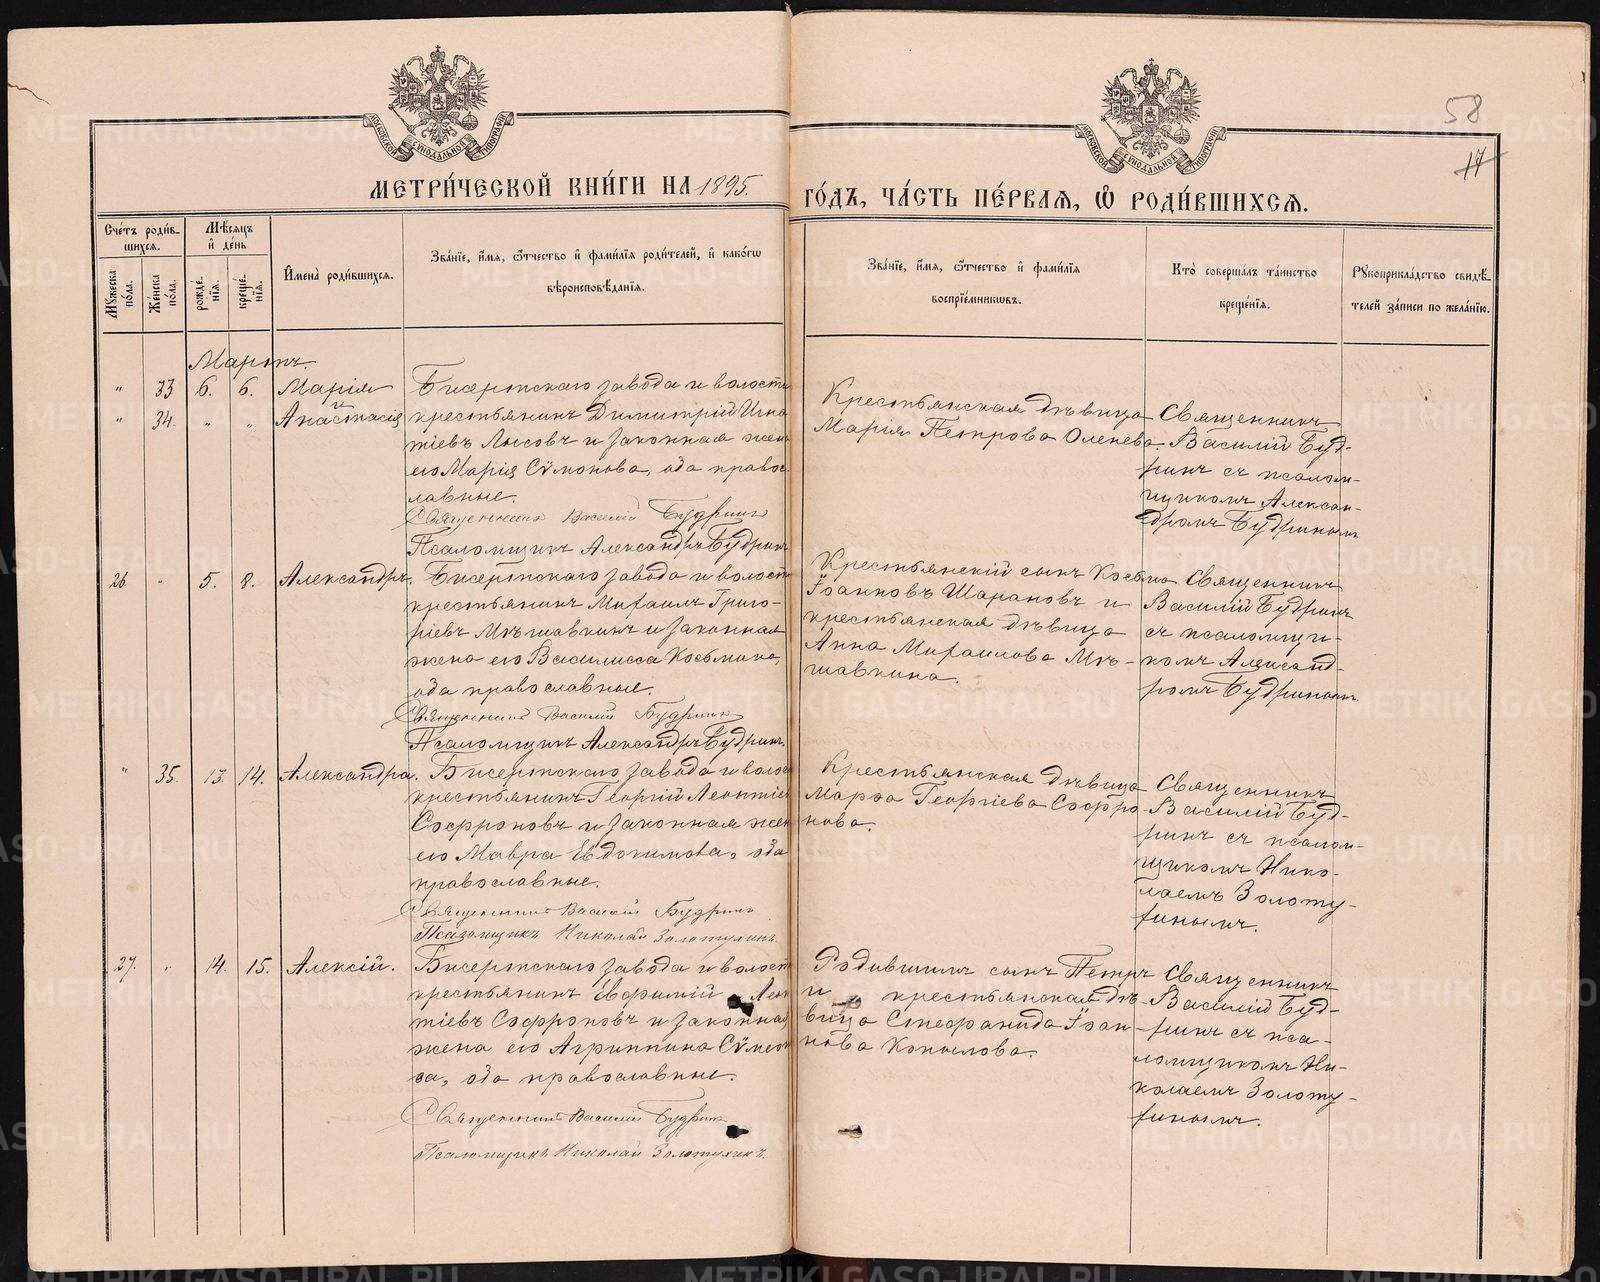 58
17
МОСКОВСКОЙ СѴНОДАЛЬНОЙ ТИПОГРАФІИ
МОСКОВСКОЙ СѴНОДАЛЬНОЙ ТИПОГРАФІИ
МЕТРИ́ЧЕСКОЙ КНИ́ГИ НА 1895.
ГО́ДЪ, ЧА́СТЬ ПЕ́РВАѦ, Ѽ РОДИ́ВШИХСѦ.
Сче́тъ роди́вшихсѧ.
Мꙋ́жеска по́ла.
Же́нска по́ла.
Мѣ́сѧцъ и҆ де́нь
рожде́нїѧ.
креще́нїѧ.
И҆мена̀ роди́вшихсѧ.
Зва́нїе, и҆́мѧ, ѻ҆́тчество и҆ фами́лїѧ роди́телей, и҆ како́гѡ
вѣроисповѣ́данїѧ.
Зва́нїе, и҆́мѧ, ѻ҆́тчество и҆ фами́лїѧ
воспрїе́мникѡвъ.
Кто̀ соверша́лъ та́инство
креще́нїѧ.
Рꙋкоприкла́дство свидѣ́-
телей за́писи по жела́нїю.
Мартъ.
" 33 6. 6. Марія
" 34. " " Анастасія
Бисертскаго завода и волости
крестьянинъ Димитрій Игна
тіевъ Лысовъ и законная жен
его Марія Сѵмонова, оба правос
лавные.
Священникъ Василій Будринъ
Псаломщикъ Александръ Будринъ
Крестьянская дѣвица
Марія Петрова Оленева.
Священникъ
Василій Буд-
ринъ съ псалом-
щикомъ Алексан-
дромъ Будринымъ
26 " 5. 8. Александръ.
Бисертскаго завода и волости
крестьянинъ Михаилъ Григо-
ріевъ Мѣшавкинъ и законная
жена его Василисса Косьмина,
оба православные.
Священникъ Василій Будринъ
Псаломщикъ Александръ Будринъ.
Крестьянскій сынъ Косьма
Іоанновъ Шарановъ и
крестьянская дѣвица
Анна Михаилова Мѣ-
шавкина.
Священникъ
Василій Будринъ
съ псаломщи-
комъ Александ-
ромъ Будринымъ
" 35. 13. 14. Александра.
Бисертскаго завода и волос
крестьянинъ Георгій Леонтіев
Софроновъ и законная жен
его Мавра Евдокимова, оба
православные.
Священникъ Василій Будринъ
Псаломщикъ Николай Золотухинъ.
Крестьянская дѣвица
Марѳа Георгіева Софро
нова.
Священникъ
Василій Буд-
ринъ съ псалом-
щикомъ Нико-
лаемъ Золоту-
хинымъ.
27. " 14. 15. Алексій.
Бисертскаго завода и волост
крестьянинъ Евфимій Леон
тіевъ Софроновъ и законна
жена его Агриппина Сѵмеон
ва, оба православные.
Священникъ Василій Будринъ
Псаломщикъ Николай Золотухинъ.
Родившимъ сынъ Петръ
и крестьянская дѣ-
вица Стефанида Іоан-
нова Копылова.
Священникъ
Василій Буд-
ринъ съ пса-
ломщикомъ Ни-
колаемъ Золоту-
хинымъ.
METRIKI.GASO-URAL.RU